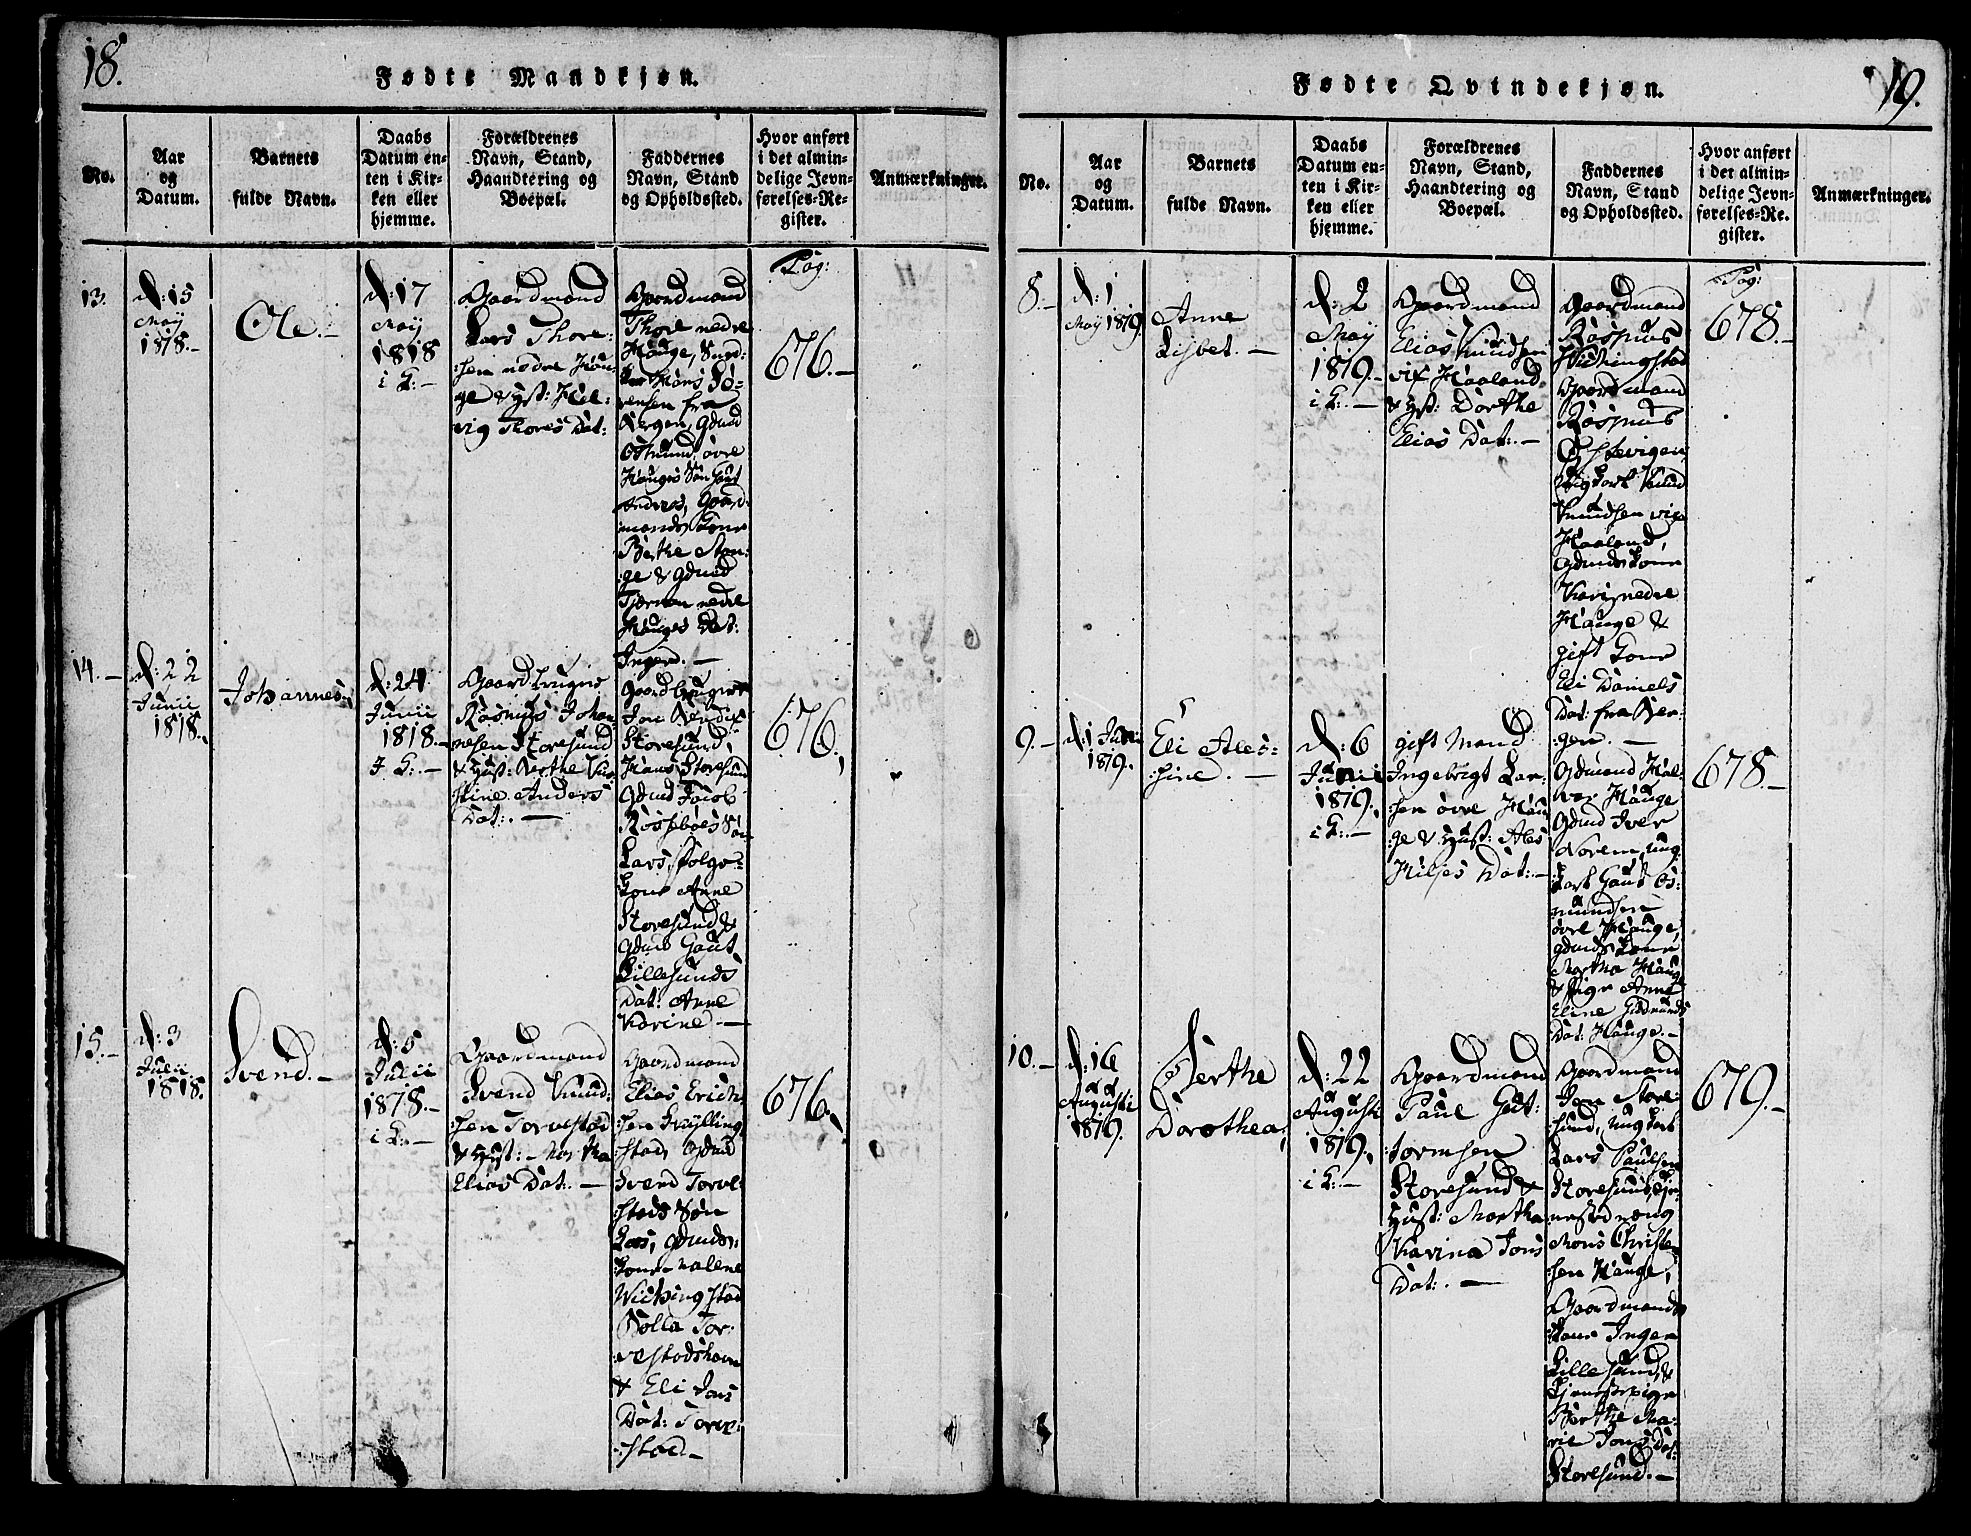 18.
Fødte Mandkjøn.
No.
Aar
og
Datum.
Barnets
fulde Navn.
Daabs
Datum en-
ten i Kir-
ken eller
hjemme.
Forældrenes
Navn, Stand,
Haandtering og
Boepæl.
Faddernes
Navn, Stand
og Opholdssted.
Hvor anført
i det almin-
delige Jevn-
førelses-Re-
gister.
Anmærkninger.
13.
d: 15
May
1818.-
Ole.-
d: 17
May
1818
i K:-
Gaardmand
Lars Thore-
:sen nedre Hau-
ge & Hust: Hel-
vig Thores Dat:
Gaardmand
Thore nedre
Hauge,
Mons Sø-
rensen fra
Bergen, Gdmd
Osmund øvre
Hauges Søn Gaut
Andreas, Gaard-
mands Kone
Berthe Stan-
ge & Gdmd
nedre
Hauges Dat:
Inger.-
Pag:
676.-
14.-
d: 22
Junii
1818.
Johannes.
d: 24
Junii
1818.-
I K:-
Gaardbruger
Rasmus Johan-
nesen Storesund
& Hust: Berthe Kir-
stine Anders
Dat:.-
Gaardbruger
Jon
Storesund,
Hans Storesund
Gdmd Jacob
Røssebøes Søn
Lars,
Kone Anne
Storesund &
Gdmd Gaut
Lillesunds
Dat: Anne
Karine.-
676.
15.-
d: 3
Julii
1818.
Svend.-
d: 5
Julii
1818.-
i K:-
Gaardmand
Svend Knud-
:sen Torvestad
& Hust: Martha
Elias Dat:.-
Gaardmand
Elias Erich-
:sen Qvylling
stad, Gdmd
Svend Torve-
stads Søn
Lars, Gdmds:
Kone Malene
Wichingstad
Kolla Tor-
vestadshavn
& Eli Jons
Dat: Torve-
:stad-
676.
19.
Fødte Qvindekjøn.
No.
Aar
og
Datum.
Barnets
fulde Navn.
Daabs
Datum en-
ten i Kir-
ken eller
hjemme.
Forældrenes
Navn, Stand,
Haandtering og
Boepæl.
Faddernes
Navn, Stand
og Opholdssted.
Hvor anført
i det almin-
delige Jevn-
førelses-Re-
gister.
Anmærkninger.
8.-
d: 1
May 1819.
Anne
Lisbet.-
d: 2
May
1819.-
i K:-
Gaardmand
Elias Knudsen
vix Haaland
& Hust: Dorthe
Elias Dat:.-
Gaardmand
Rasmus
Wichingstad
Gaardmand
Rasmus
Østevigen,
Ungkarl Knud
Knudsen vix
Haaland,
Gdmds Kone
Kari nedre
Hauge &
gift Kone
Eli Daniels
Dat: fra Ber-
gen.-
Pag:
678.-
9.-
d: 1 Junii
1819.
Eli Ales-
:sine.-
d: 6
Junii
1819.
i K:-
gift Mand
Ingebrigt Lar-
:sen øvre Hau-
ge & Hust: Ales
Hiljes Dat:.-
Gdmand Hal-
vor Hauge
Gdmd Iver
Norem, Ung-
karl Gaut Os-
mundsen
øvre Hauge,
Gdmds Kone
Martha Hauge
& Pige Anne
Eline Gudmunds
Dat: Hauge.-
678.-
10.-
d: 16
Augusti
1819.
Berthe
Dorothea.
d: 22
Augusti
1819.
i K:-
Gaardmand
Paul Gut-
tormsen
Storesund &
Hust: Martha
Karina Jons
Dat:.-
Gaardmand
Jon Store-
sund, Ungkarl
Lars Paulsen
Storesund, Tje-
nestedreng
Mons Christe-
:sen Hauge,
Gaardmands
Kone Inger
Lillesund, &
Tjenestepige
Berthe Ma-
rie Jons Dat:
Storesund.-
679.-